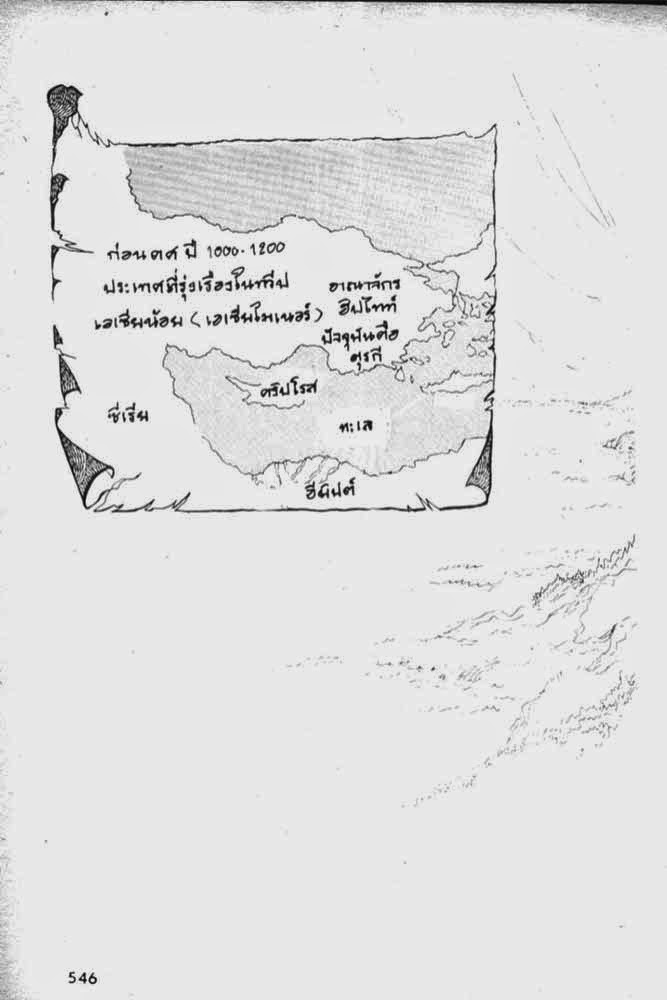 ก่อน ค ศ ปี 1000-1200
ประเทศที่รุ่งเรืองในทวีป
เอเซียน้อย (เอเซียไมเนอร์)
อาณาจักร
ฮิปไทท์
ปัจจุบันคือ
ตุรกี
คริปโรส
ซีเรีย
ทะเล
อียิปต์
546